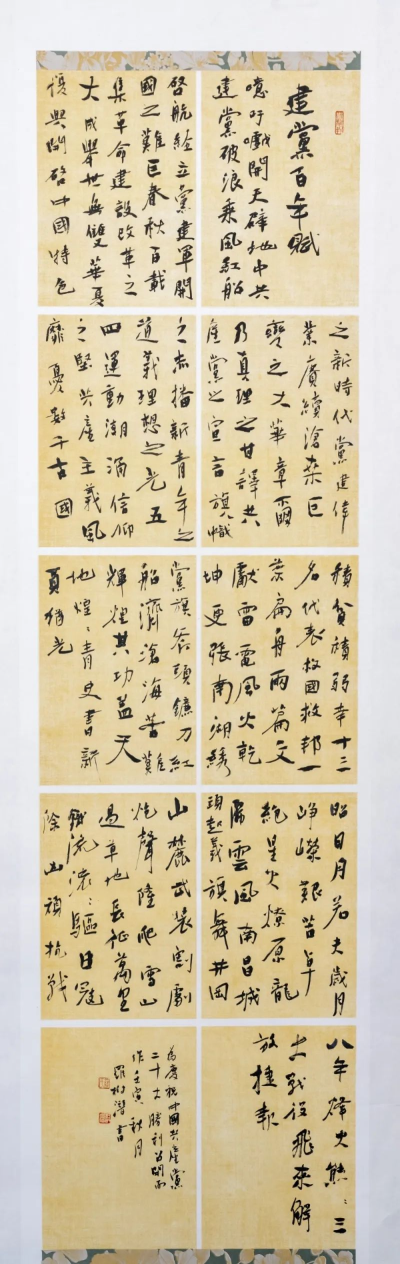 建黨百年賦
噫吁嚱開天辟地中共
建黨破浪乘風紅船
啓航經立黨建軍開
國之難巨春秋百載
集革命建設改革之
大成舉世無雙華夏
復興開啓中國特色
之新時代黨建偉
業賡續滄桑巨
變之大華章爾
乃真理之甘譯共
産黨之宣言旗幟
之赤描新青年之
道義理想之光五
四運動潮涌信仰
之堅共産主義風
靡憂數千古國
積貧積弱幸十三
名代表救國救邦一
葉扁舟兩篇文
獻雷電風火乾
坤更張南湖綉
黨旗斧頭鐮刀紅
船濟滄海苦難
輝煌其功蓋天
地煌〻青史書新
頁猶光
昭日月若夫歲月
崢嶸艱苦卓
絕星火燎原龍
虎雲風南昌城
頭起義旗舞井岡
山麓武裝割劇
炮聲陸爬雪山
過草地長征萬里
鐵流滾〻驅日寇
除凶頑抗戰
八年烽火熊〻三
大戰役飛來解
放捷報
為慶祝中國共産黨
二十大勝利召開而
作壬寅秋月
羅樹書